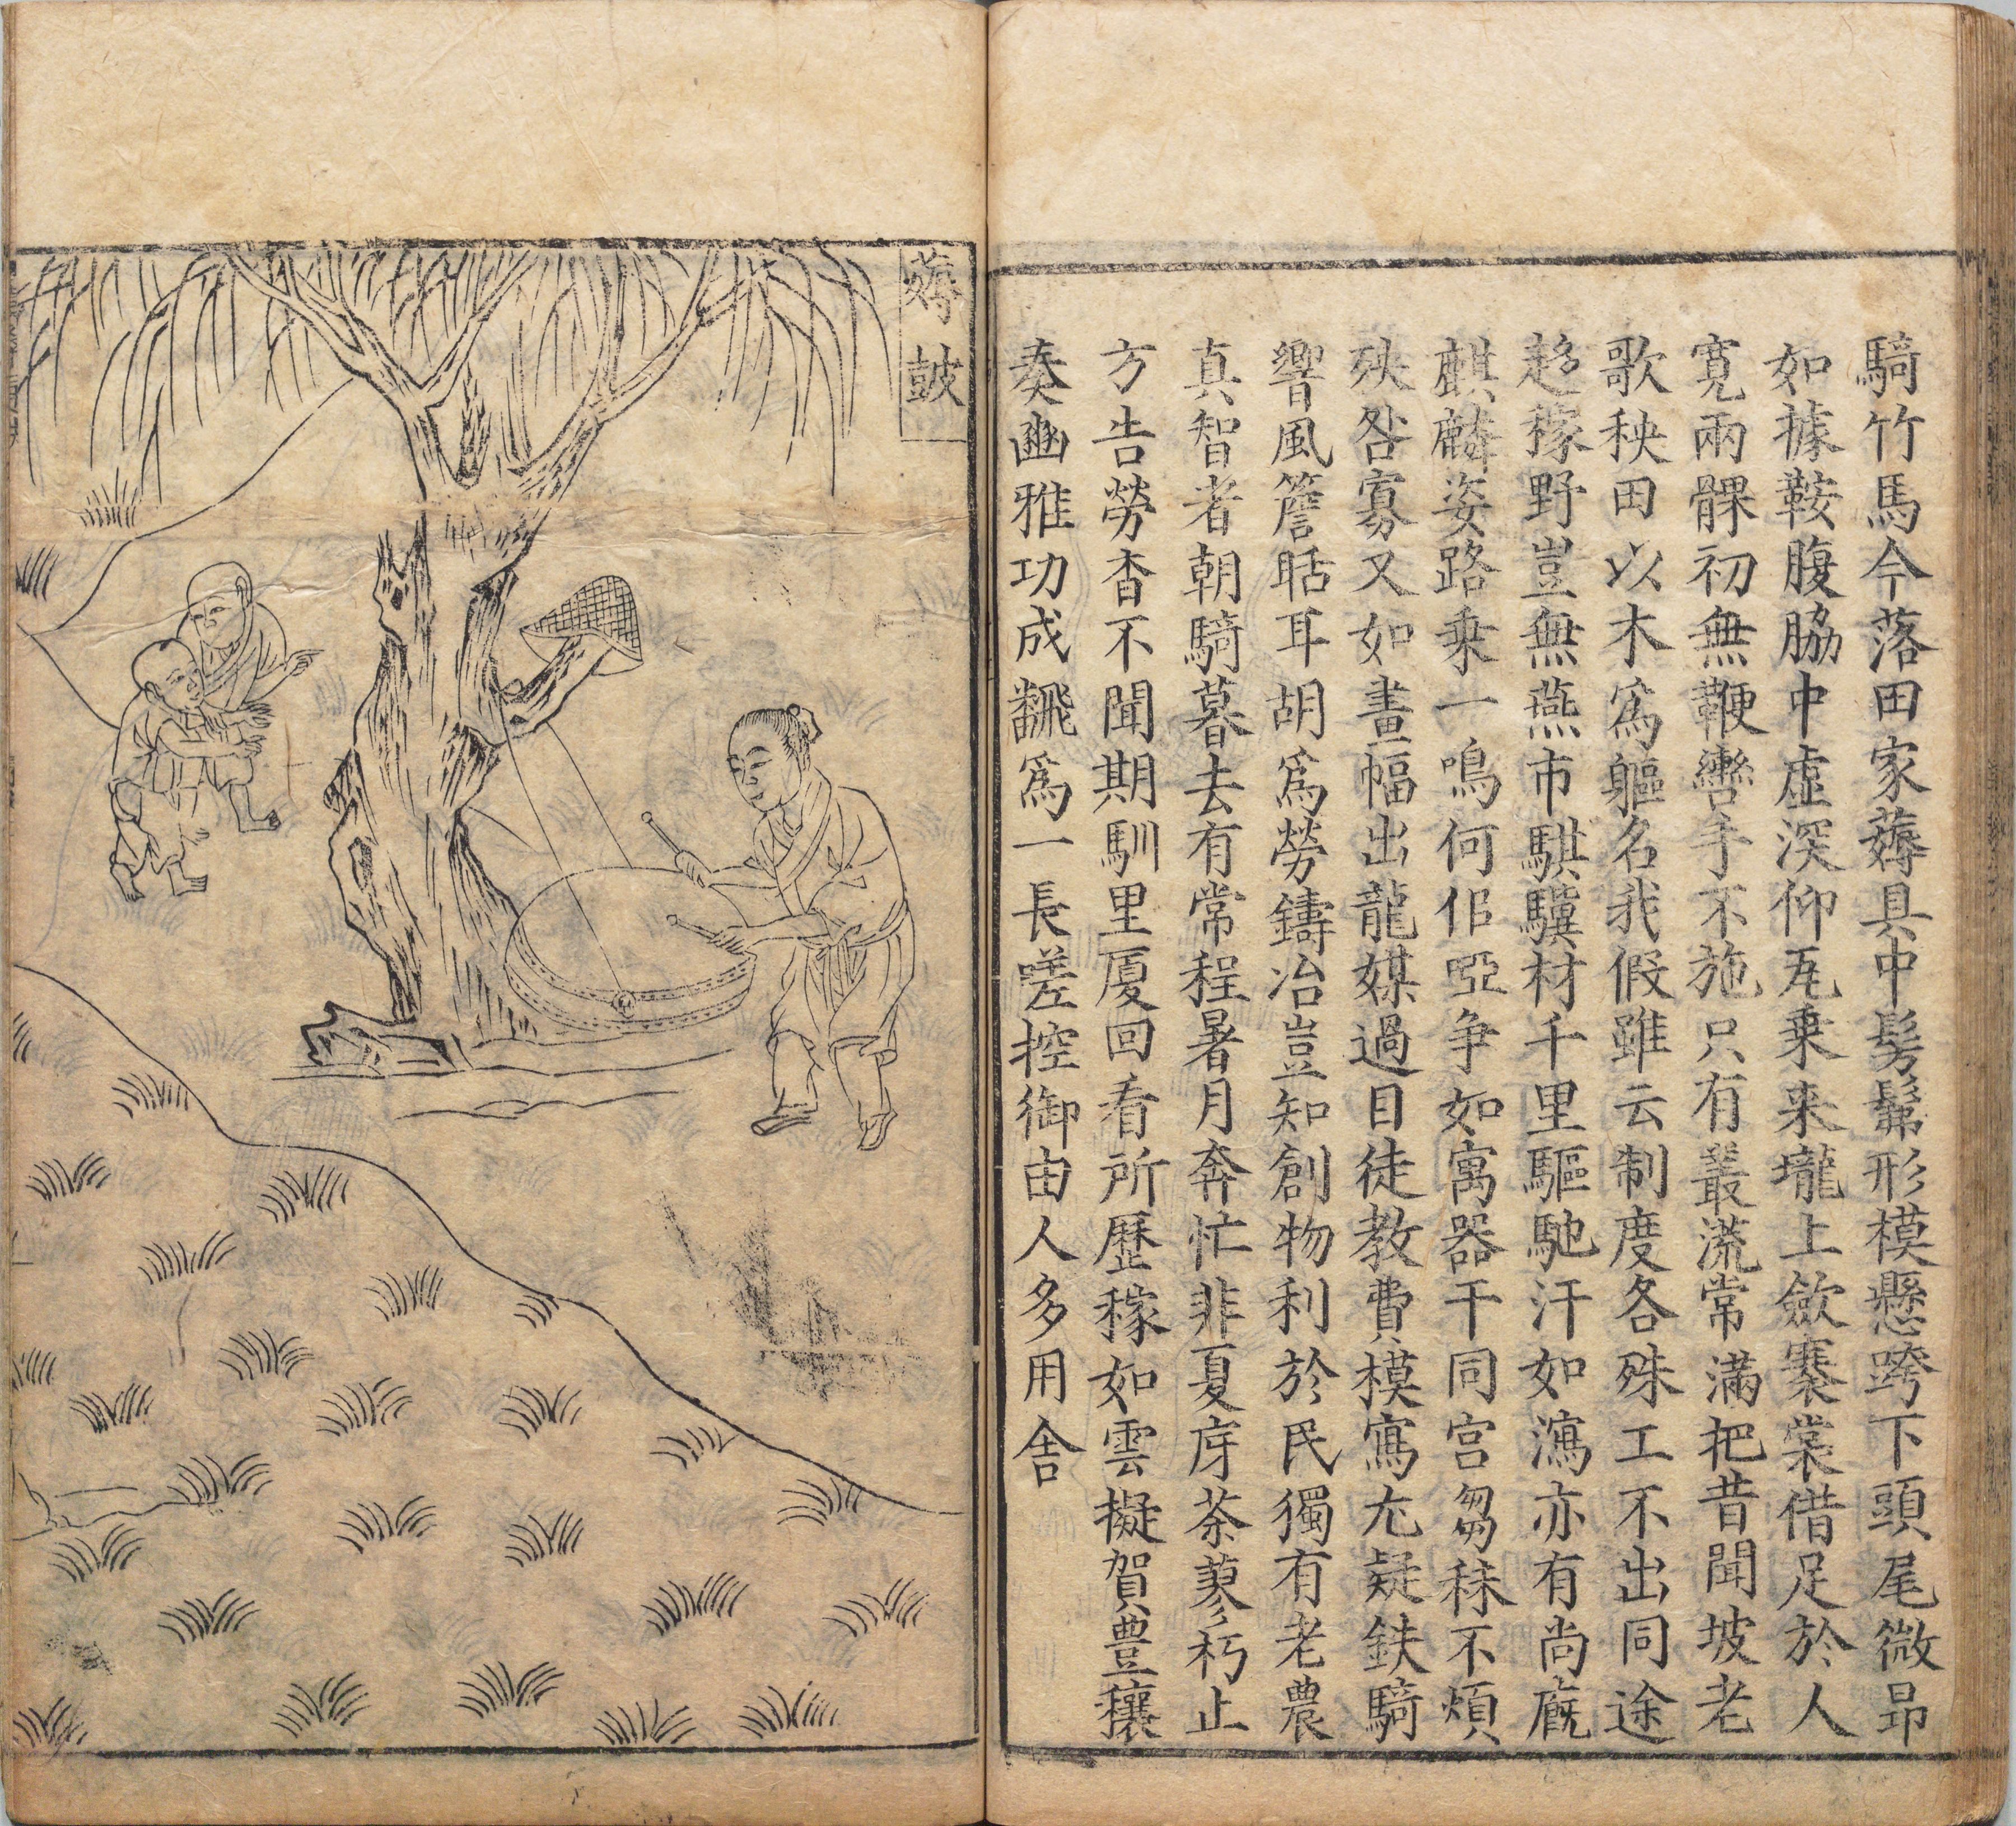 騎竹馬今落田家薅具中髣髴形模懸跨下頭尾微昻
如據鞍腹脇中虚深仰瓦乗来壠上斂褰裳借足於人
寛兩髁初無鞭轡手不施只有叢流常滿把昔聞坡老
歌秧田以木爲軀名我假雖云制度各殊工不出同途
趍稼野豈無燕市騏驥材千里驅馳汗如瀉亦有尚廐
麒麟姿路乗一鳴何佀啞争如寓器干同宫芻秣不煩
殃咎寡又如畫幅出龍媒過目徒教費模寫尢疑鉄騎
響風簷聒耳胡爲勞鑄冶豈知創物利於民獨有老農
真智者朝騎暮去有常程暑月奔忙非夏庌荼蓼朽止
方告勞杳不聞期馴里厦回看所歷稼如雲擬賀豊穰
奏豳雅功成飜爲一長嗟控御由人多用舍
薅鼓